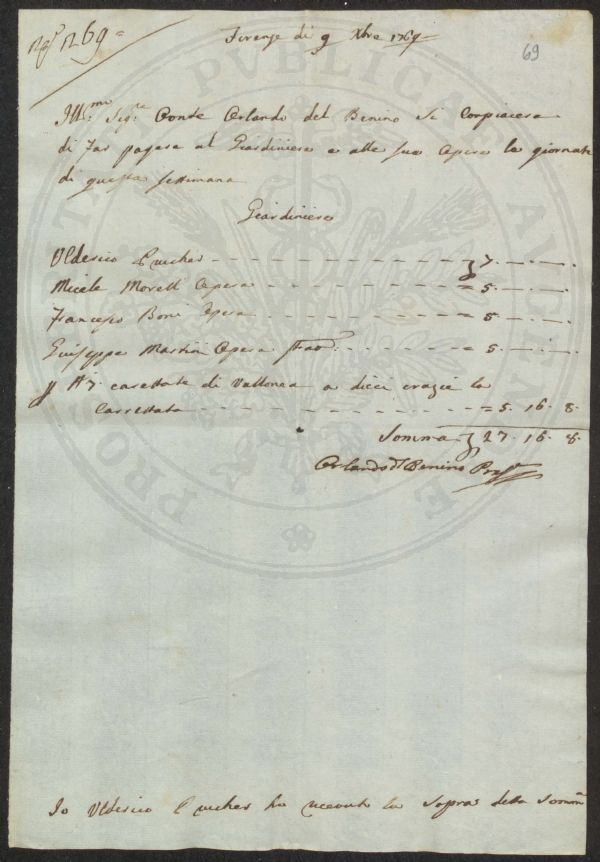 N° 1269=
Firenze di 9 Xbre 1769
69
Ill:mo Sigre Conte Orlando del Benino Si Compiacera
di far pagare al Giardiniere e alle sue Opere le giornate
di questa settimana
Giardiniere
Ulderico Prucher - - - - - - - - - - - 7. —. —.
Micele Morelli Opera - - - - - - - - - = 5. —. —.
Francesco Boni Opera - - - - - - - - = 5. —. —.
Guiseppe Martini Opera - - - - - = 5. —. —.
p N° 7 carettate di Vallonea a dieci crazie la
Carrettata - - - - - - - - - - - - - = 5. 16. 8.
Somma 27. 16. 8.
Orlando del Benino Provre
Io Ulderico Prucher ho ricevuto la sopra detta Somma
PROSPERITATI PUBLICAE AUGENDAE